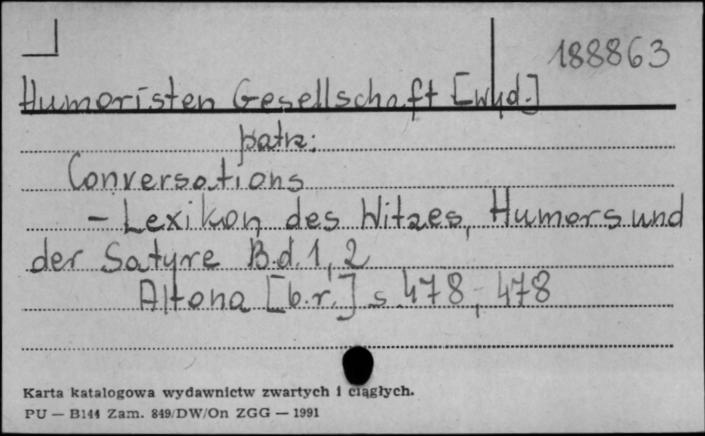 188863
Humoristen Gesellschaft [wyd.]
patrz:
Conversations
- Lexikon des Witzes, Humors und
der Satyre Bd. 1, 2
Altona [b.r.] s. 478, 478
Karta katalogowa wydawnictw zwartych i ciągłych.
PU — B144 Zam. 849/DW/On ZGG — 1991